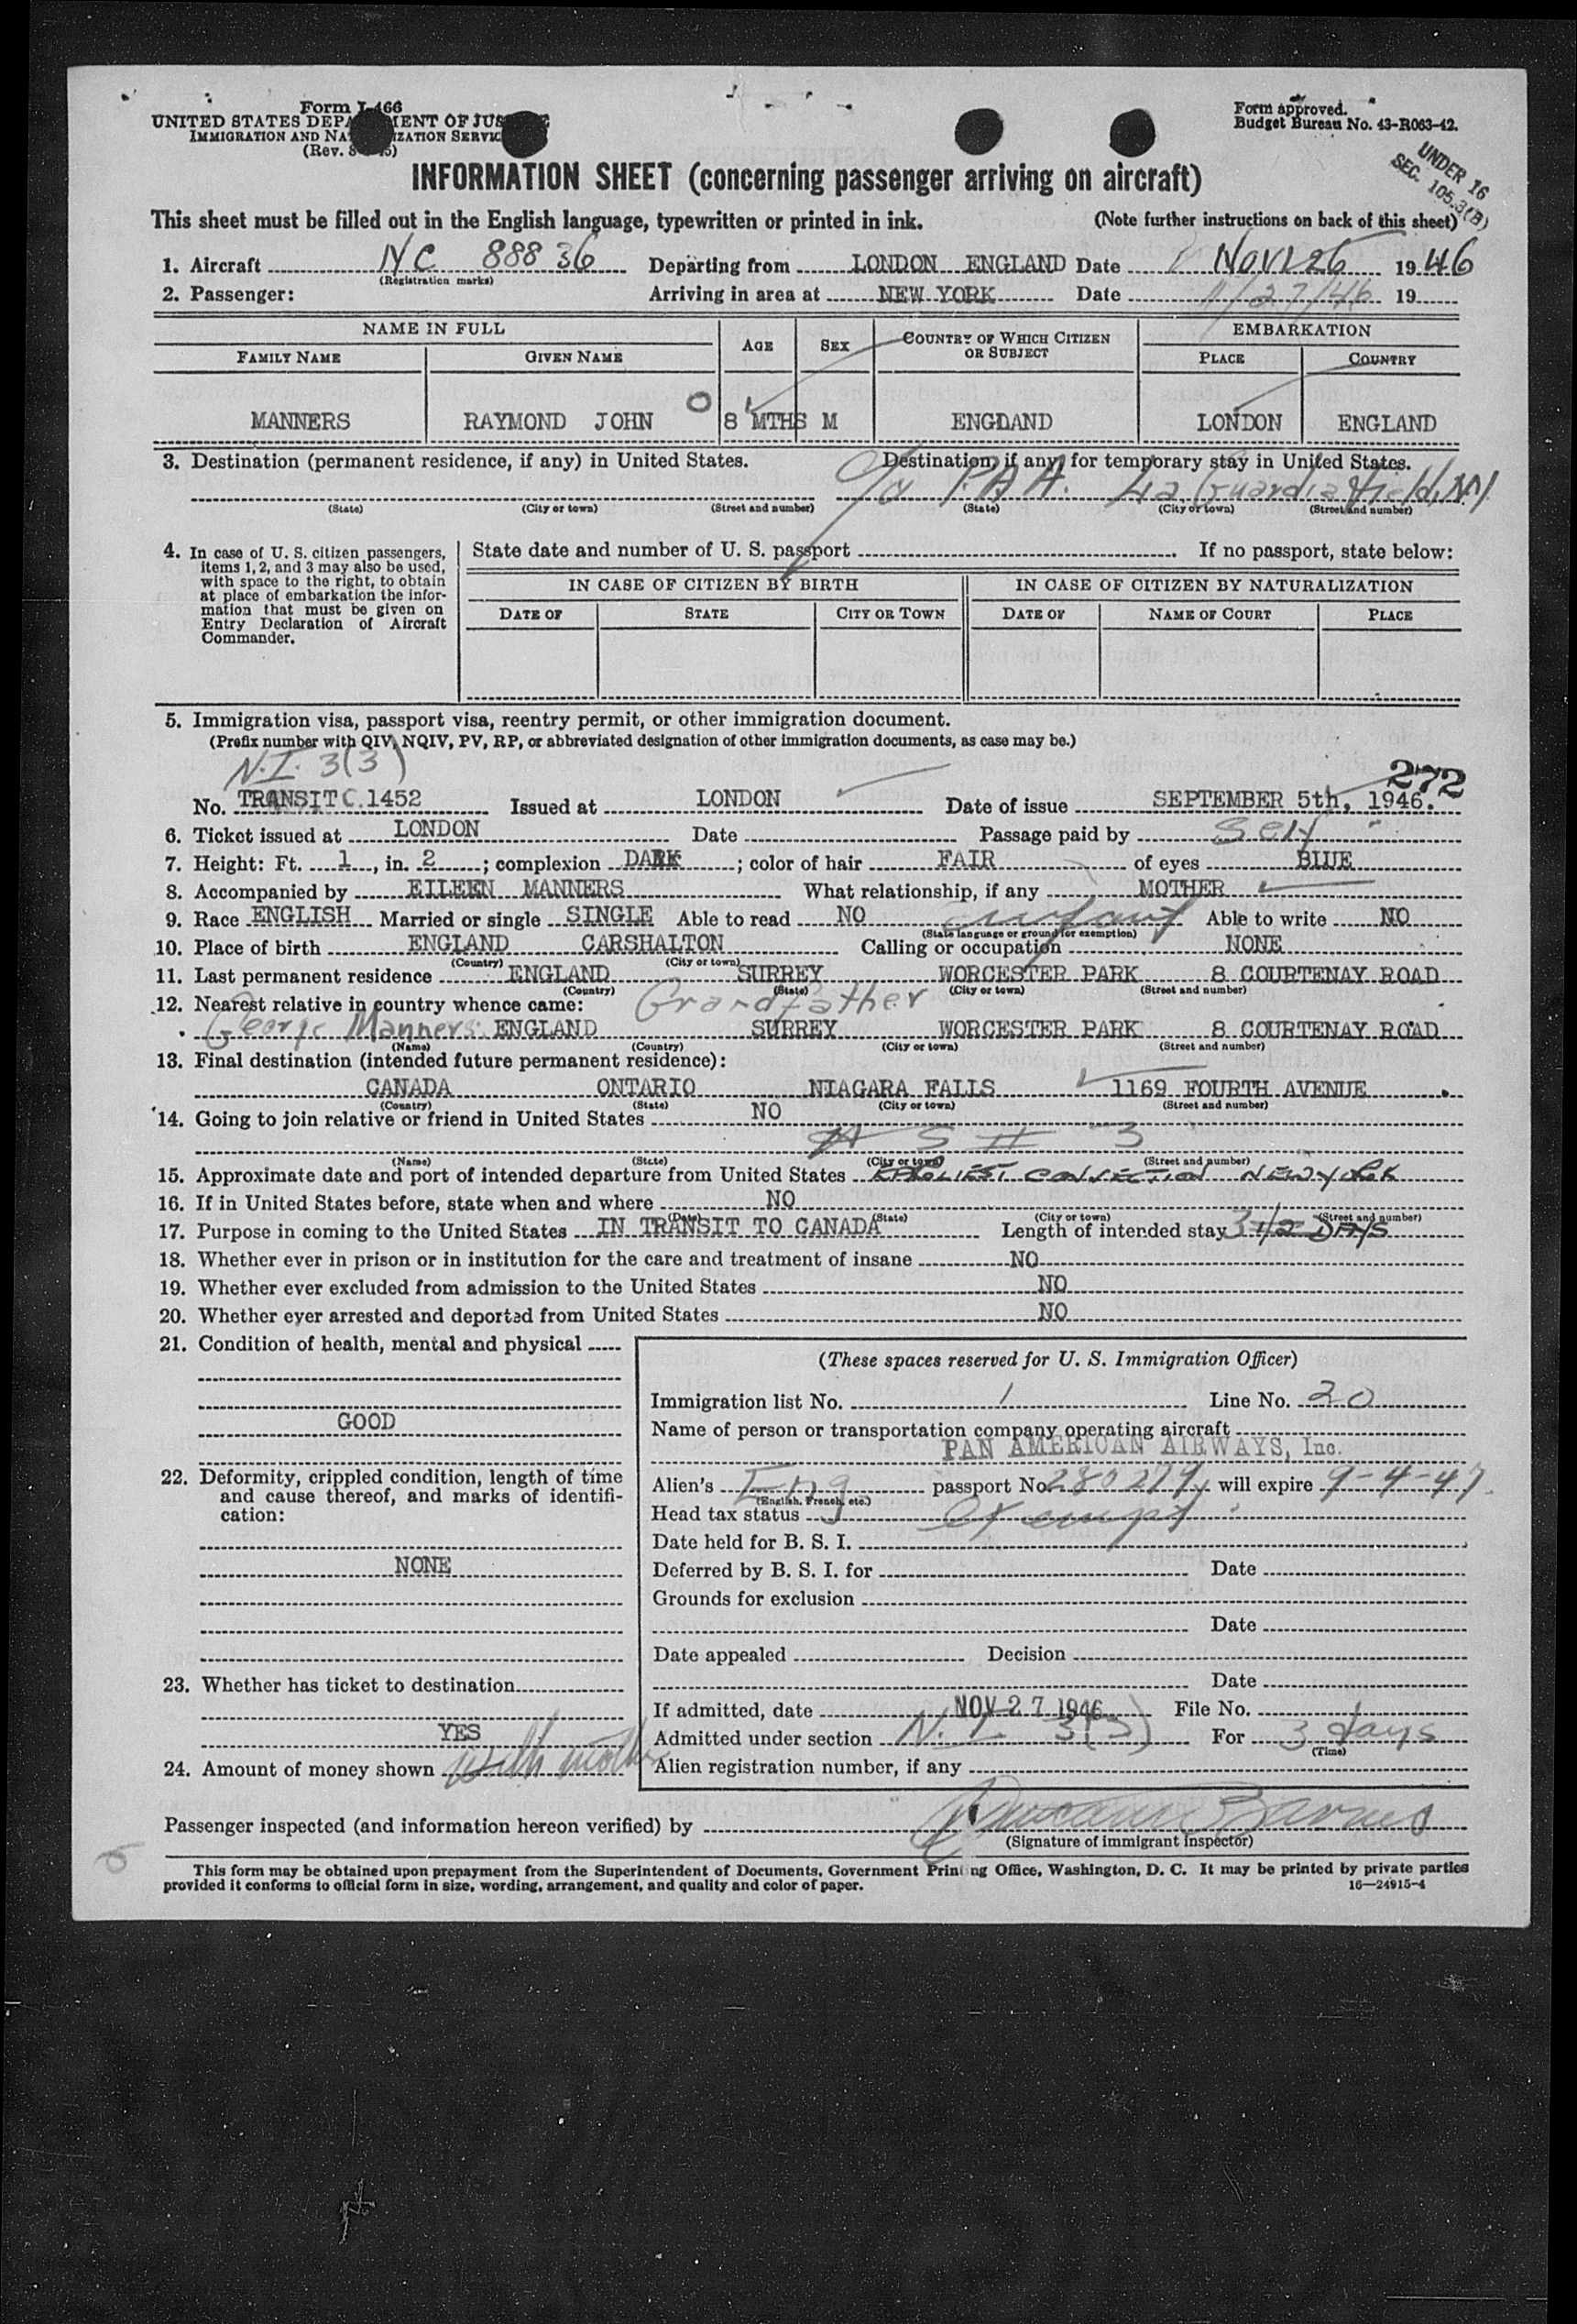 Form I-466
UNITED STATES DEPARTMENT OF JUSTICE
IMMIGRATION AND NATURALIZATION SERVICE
(Rev. 8
Form approved.
Budget Bureau No. 43-R063-42.
UNDER 16
SEC. 105.3(B)
INFORMATION SHEET (concerning passenger arriving on aircraft)
This sheet must be filled out in the English language, typewritten or printed in ink. (Note further instructions on back of this sheet)
1. Aircraft NC 88836 Departing from LONDON ENGLAND Date NOV 26 1946
(Registration marks)
2. Passenger: Arriving in area at NEW YORK Date 11/27/46 19
NAME IN FULL AGE SEX COUNTRY OF WHICH CITIZEN OR SUBJECT EMBARKATION
FAMILY NAME GIVEN NAME PLACE COUNTRY
MANNERS RAYMOND JOHN 0 8 MTHS M ENGLAND LONDON ENGLAND
3. Destination (permanent residence, if any) in United States. Destination, if any, for temporary stay in United States.
c/o P.A.A. La Guardia Field, NY
(State) (City or town) (Street and number) (State) (City or town) (Street and number)
4. In case of U. S. citizen passengers, items 1, 2, and 3 may also be used, with space to the right, to obtain at place of embarkation the information that must be given on Entry Declaration of Aircraft Commander.
State date and number of U. S. passport If no passport, state below:
IN CASE OF CITIZEN BY BIRTH IN CASE OF CITIZEN BY NATURALIZATION
DATE OF STATE CITY OR TOWN DATE OF NAME OF COURT PLACE
5. Immigration visa, passport visa, reentry permit, or other immigration document.
(Prefix number with QIV, NQIV, PV, RP, or abbreviated designation of other immigration documents, as case may be.)
N.I. 3(3) 272
No. TRANSIT C.1452 Issued at LONDON Date of issue SEPTEMBER 5th, 1946.
6. Ticket issued at LONDON Date Passage paid by Self
7. Height: Ft. 1, in. 2; complexion DARK; color of hair FAIR of eyes BLUE
8. Accompanied by EILEEN MANNERS What relationship, if any MOTHER
9. Race ENGLISH Married or single SINGLE Able to read NO infant Able to write NO
(State language or ground for exemption)
10. Place of birth ENGLAND CARSHALTON Calling or occupation NONE
(Country) (City or town)
11. Last permanent residence ENGLAND SURREY WORCESTER PARK 8 COURTENAY ROAD
(Country) (State) (City or town) (Street and number)
12. Nearest relative in country whence came: Grandfather
George Manners ENGLAND SURREY WORCESTER PARK 8 COURTENAY ROAD
(Name) (Country) (City or town) (Street and number)
13. Final destination (intended future permanent residence):
CANADA ONTARIO NIAGARA FALLS 1169 FOURTH AVENUE
(Country) (State) (City or town) (Street and number)
14. Going to join relative or friend in United States NO
(Name) (State) (City or town) (Street and number)
15. Approximate date and port of intended departure from United States EARLIEST CONNECTION NEW YORK
16. If in United States before, state when and where NO
(Date) (State) (City or town) (Street and number)
17. Purpose in coming to the United States IN TRANSIT TO CANADA Length of intended stay 3 1/2 DAYS
18. Whether ever in prison or in institution for the care and treatment of insane NO
19. Whether ever excluded from admission to the United States NO
20. Whether ever arrested and deported from United States NO
21. Condition of health, mental and physical
GOOD
22. Deformity, crippled condition, length of time and cause thereof, and marks of identification:
NONE
23. Whether has ticket to destination
YES
24. Amount of money shown with mother
(These spaces reserved for U. S. Immigration Officer)
Immigration list No. 1 Line No. 20
Name of person or transportation company operating aircraft
PAN AMERICAN AIRWAYS, Inc.
Alien's Eng passport No. 280279 will expire 9-4-47
(English, French, etc.)
Head tax status exempt
Date held for B. S. I.
Deferred by B. S. I. for Date
Grounds for exclusion
Date
Date appealed Decision
Date
If admitted, date NOV 27 1946 File No.
Admitted under section N.I. 3(3) For 3 days
(Time)
Alien registration number, if any
Passenger inspected (and information hereon verified) by Barnes
(Signature of immigrant inspector)
This form may be obtained upon prepayment from the Superintendent of Documents, Government Printing Office, Washington, D. C. It may be printed by private parties
provided it conforms to official form in size, wording, arrangement, and quality and color of paper. 16—24915-4